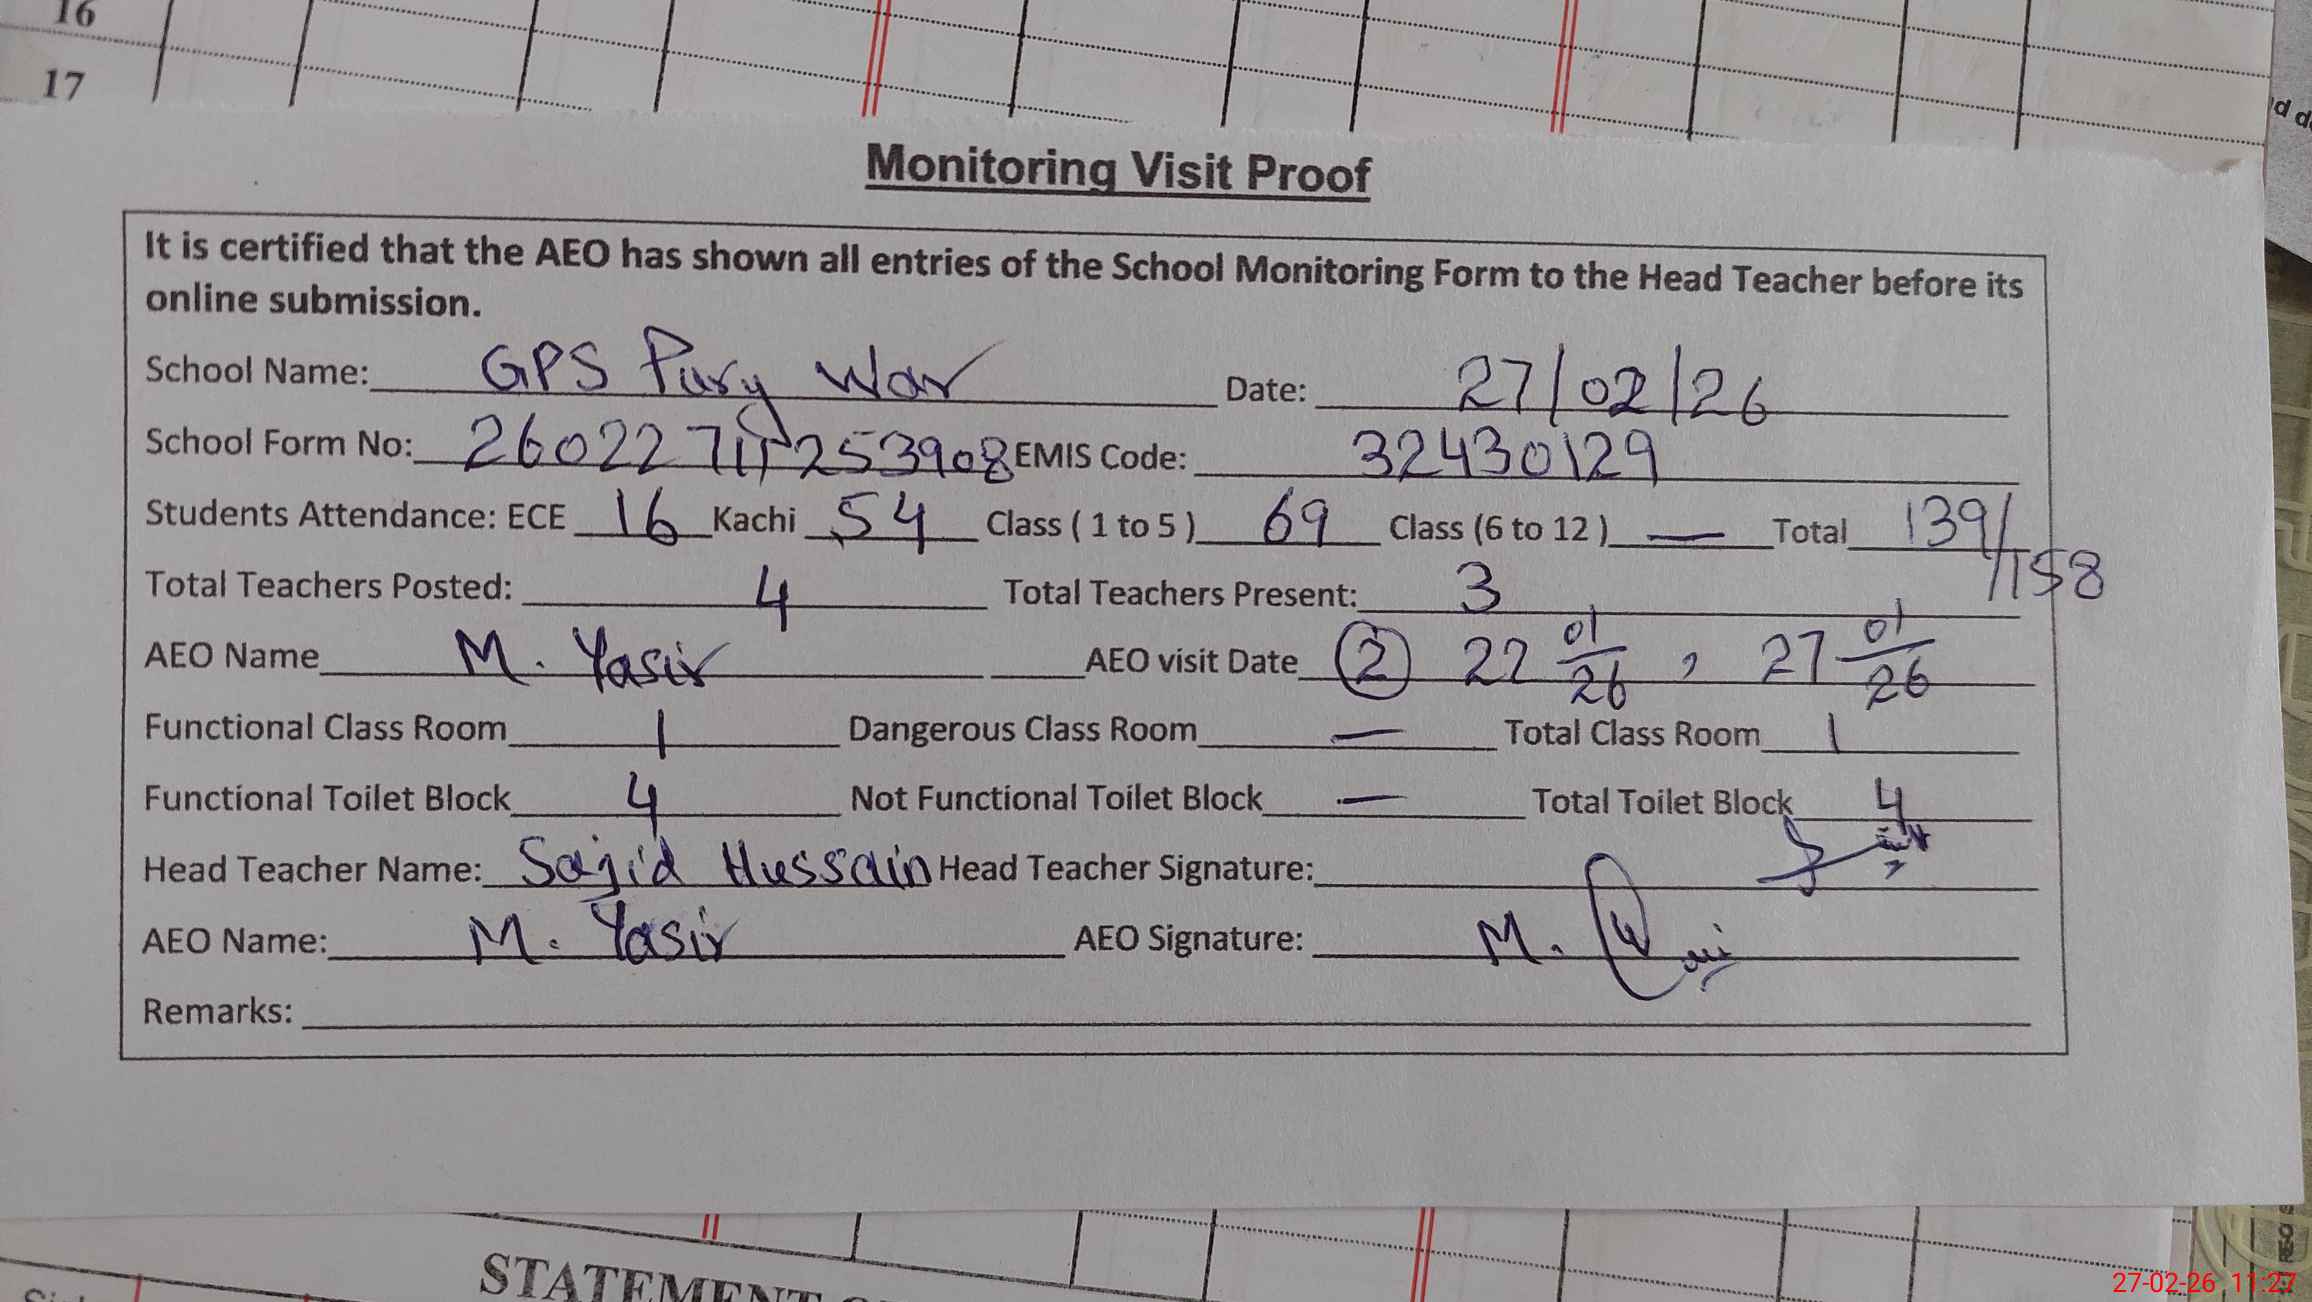 16
17
Monitoring Visit Proof
It is certified that the AEO has shown all entries of the School Monitoring Form to the Head Teacher before its
online submission.
School Name: GPS Pury War Date: 27/02/26
School Form No: EMIS Code: 32430129
Students Attendance: ECE 16 Kachi 54 Class ( 1 to 5 ) 69 Class (6 to 12 ) — Total 139/158
Total Teachers Posted: 4 Total Teachers Present: 3
AEO Name M. Yasir AEO visit Date 2 22 01/26 , 27 01/26
Functional Class Room 1 Dangerous Class Room — Total Class Room 1
Functional Toilet Block 4 Not Functional Toilet Block — Total Toilet Block 4
Head Teacher Name: Sajid Hussain Head Teacher Signature:
AEO Name: M. Yasir AEO Signature: M.
Remarks:
STATEMENT
27-02-26 11:27